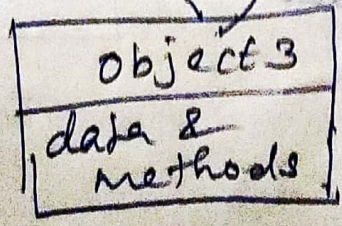 object3
data &
methods